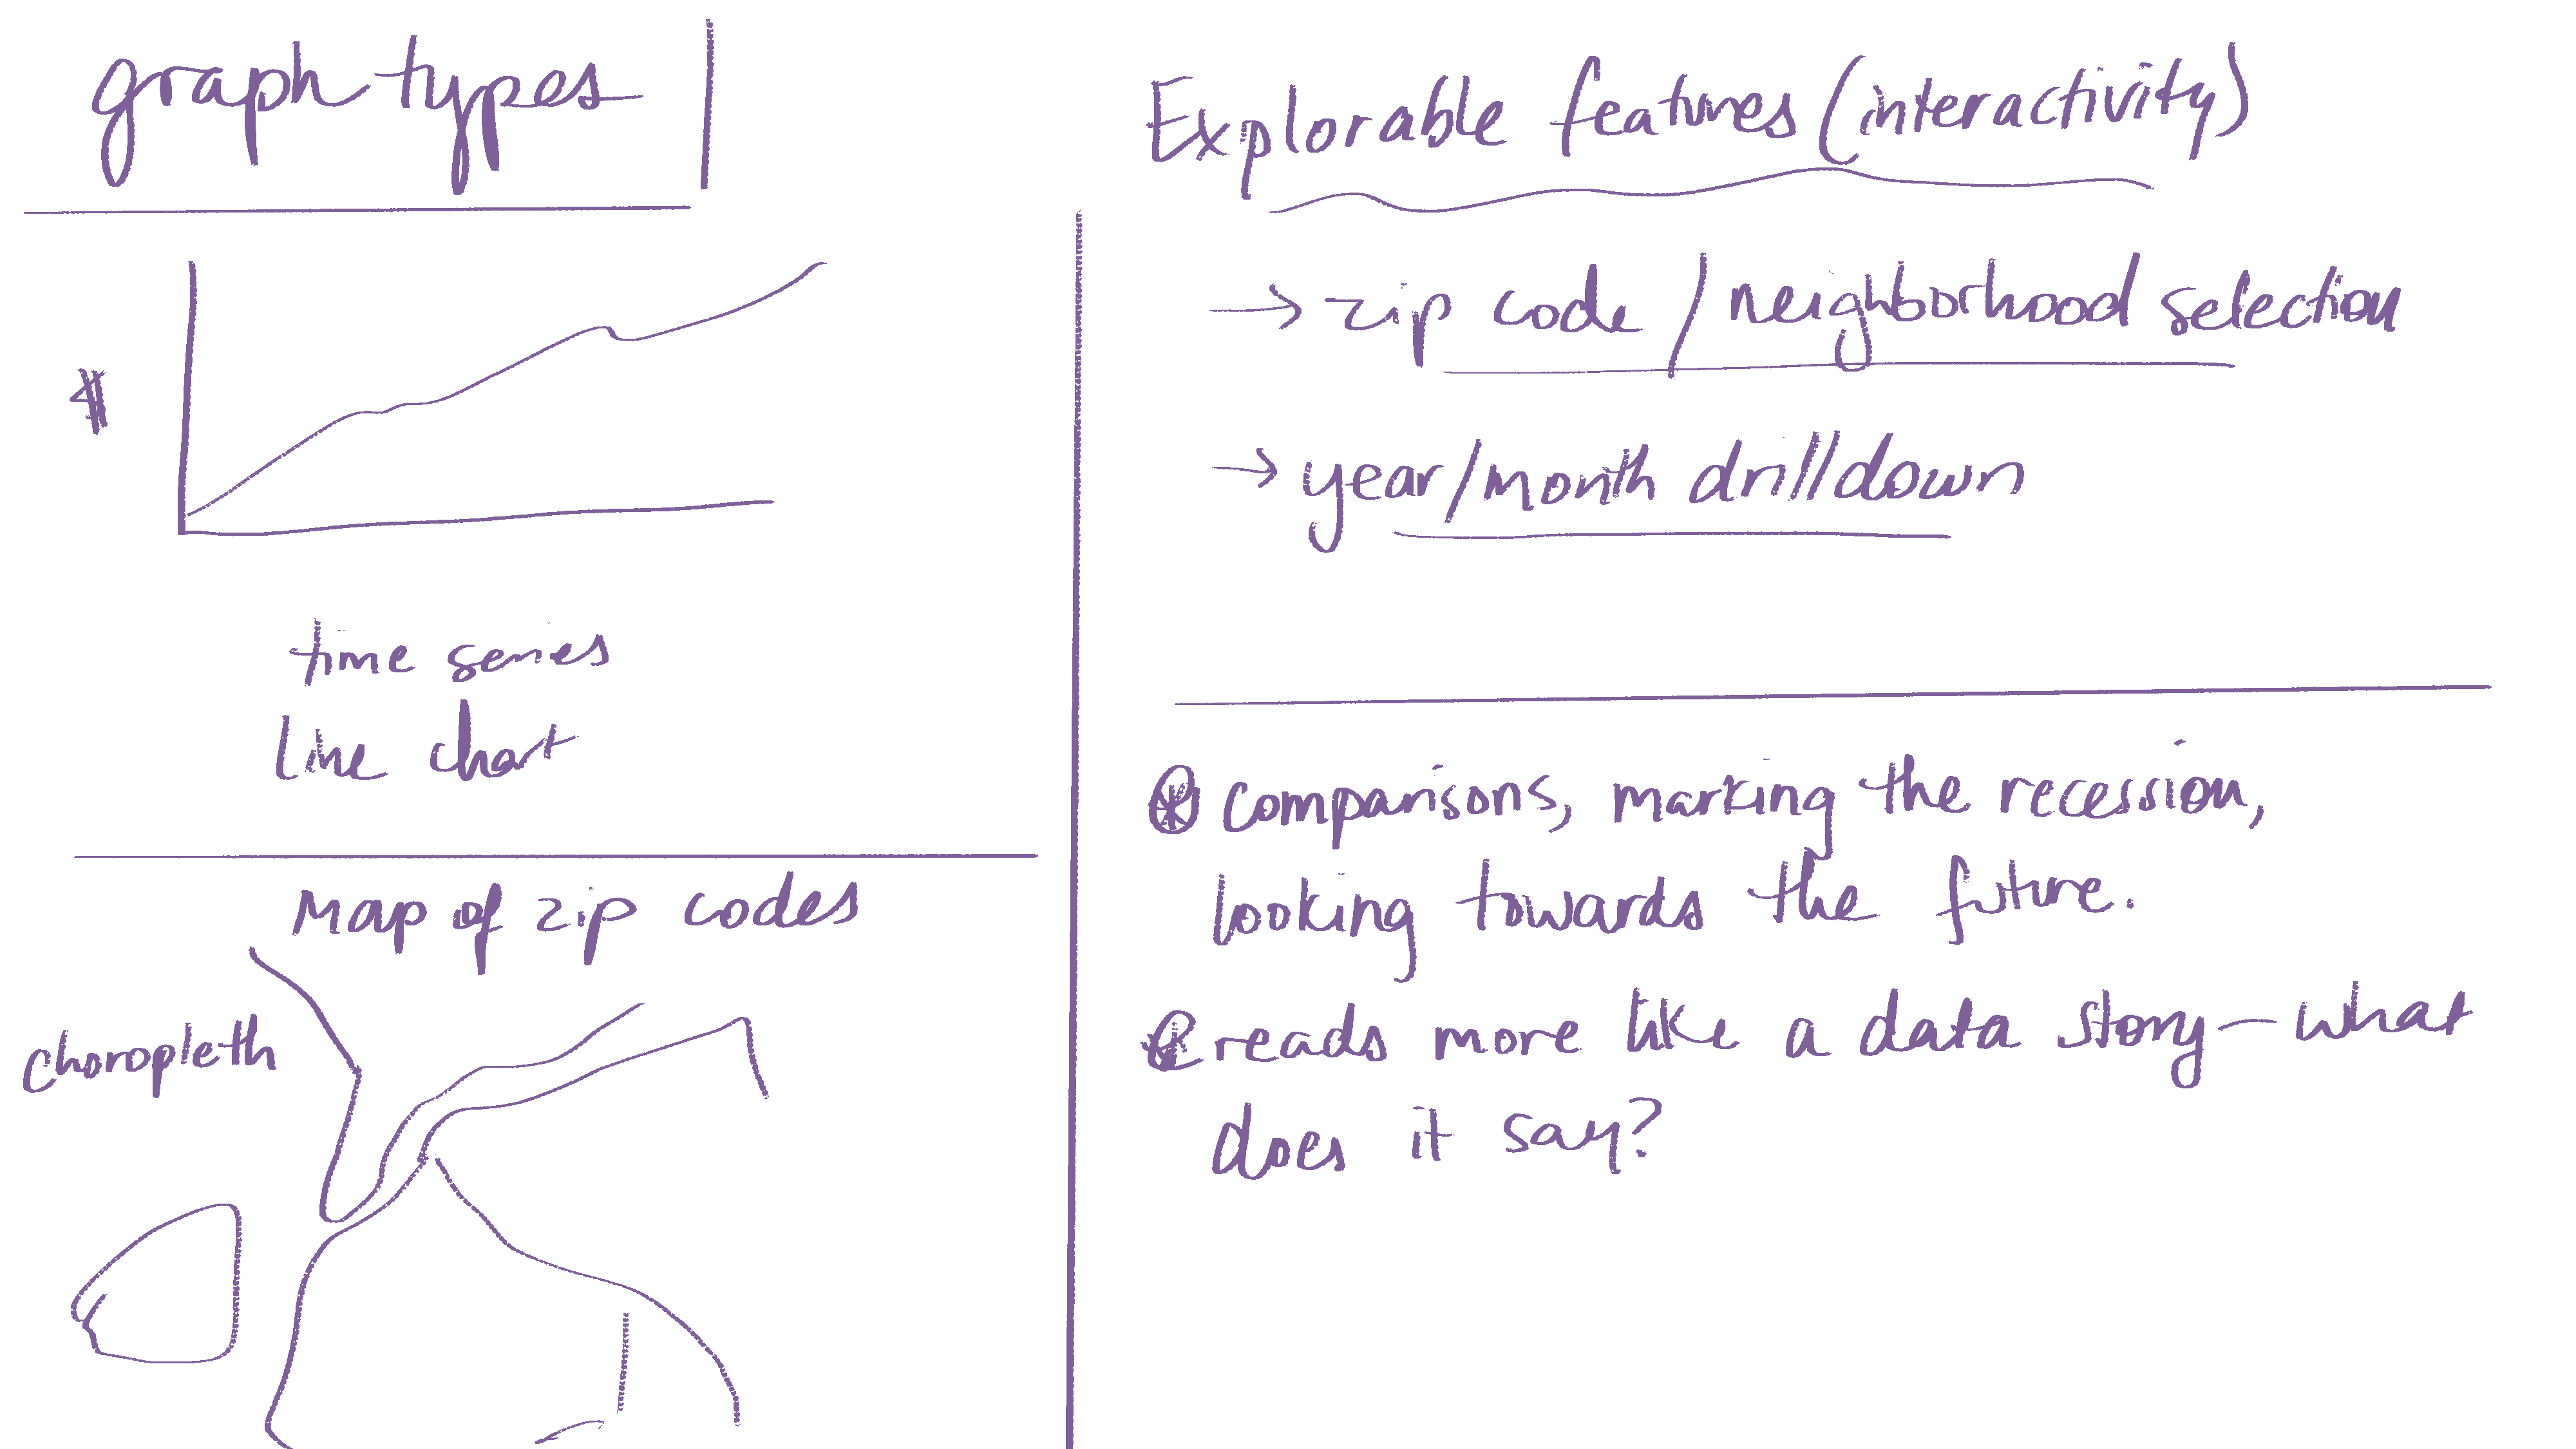 graph types
$
time series
line chart
Map of zip codes
choropleth
Explorable features (interactivity)
→ zip code / neighborhood selection
→ year/month drilldown
comparisons, marking the recession,
looking towards the future.
reads more like a data story - what
does it say?